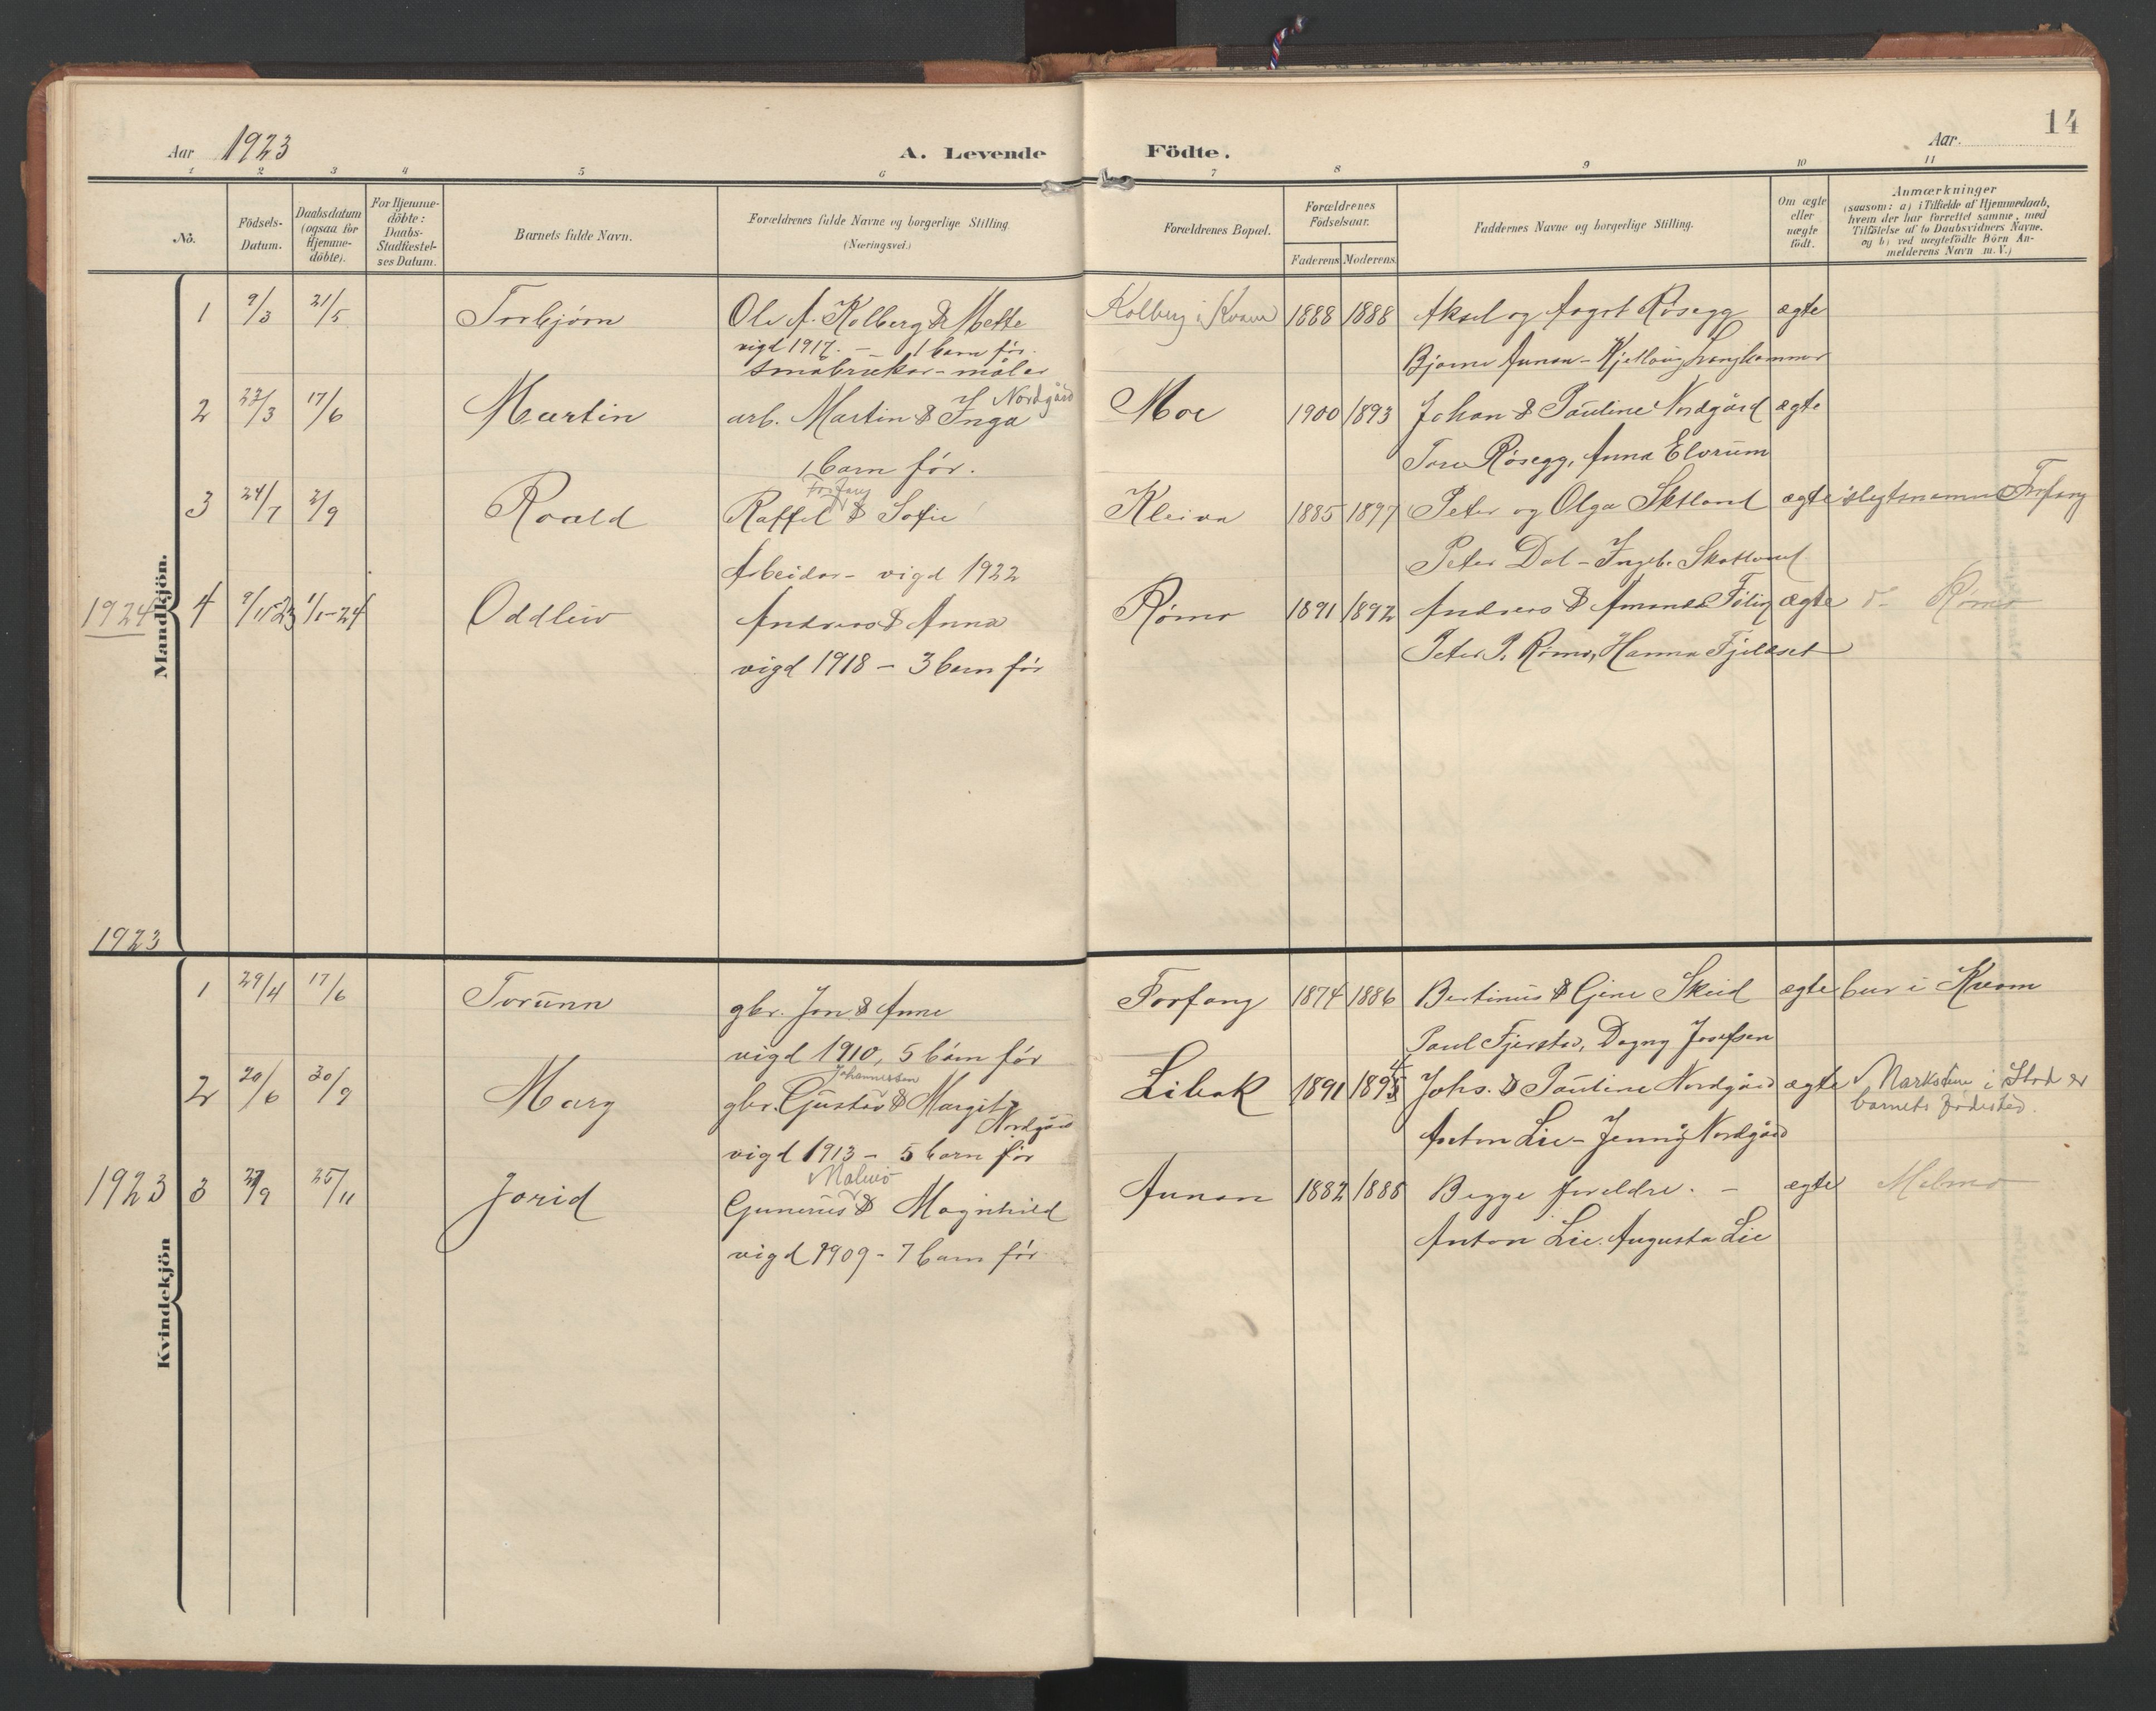 14
Aar 1923
A. Levende Födte.
Aar.
1 2 3 4 5 6 7 8 9 10 11
No.
Födsels-Datum.
Daabsdatum (ogsaa for Hjemme-döbte).
For Hjemme-döbte: Daabs-Stadfæstel-ses Datum.
Barnets fulde Navn.
Forældrenes fulde Navne og borgerlige Stilling. (Næringsvei.)
Forældrenes Bopæl.
Forældrenes Födselsaar.
Faderens. Moderens.
Faddernes Navne og borgerlige Stilling.
Om ægte eller uægte födt.
Anmærkninger
(saasom: a) i Tilfælde af Hjemmedaab,
hvem der har forrettet samme, med
Tilföielse af to Daabsvidners Navne,
og b) ved uægtefödte Börn An-
melderens Navn m. V.)
Mandkjön.
1 9/3 21/5 Torbjørn Ole A. Kolberg & Mette Kolberg i Kvam 1888 1888 Aksel og Aagot Røsegg ægte
vigd 1917. - 1 barn før. Bjarne Aunan - Kjellaug Langhammer
småbruker - måler
2 23/3 17/6 Martin arb. Martin & Inga Nordgård Moe 1900 1893 Johan & Pauline Nordgård ægte
1 barn før. Tore Røsegg, Anna Elvrum
3 24/7 2/9 Roald Raffel Forfang & Sofie Kleiva 1885 1897 Peter og Olga Sketland ægte slegtsnamn Forfang
Arbeider - vigd 1922 Peter Dal - Ingeb. Skotland
1924 4 9/11-23 1/1-24 Oddleiv Andreas & Anna Rømo 1891 1892 Andreas & Amanda Følin ægte d- Rømo
vigd 1918 - 3 barn før Peter P. Rømo, Hanna Fjeldset
1923
Kvindekjön
1 29/4 17/6 Torunn gbr. Jon & Anne Forfang 1874 1886 Bertinus & Gjine Skeid ægte bur i Kvam
vigd 1910, 5 barn før Paul Fjerstad, Dagny Josefsen
2 20/6 30/9 Mary gbr. Gustav Johannessen & Margit Nordgård Libak 1891 1895 4 Johs. & Pauline Nordgård ægte Marksten i Stod er
barnets fødested.
vigd 1913 - 5 barn før Anton Lie - Jenny Nordgård
1923 3 27/9 25/11 Jorid Gunerius Malmo & Magnhild Aunan 1882 1888 Begge foreldre. - ægte Malmo
vigd 1909 - 7 barn før Anton Lie. Augusta Lie